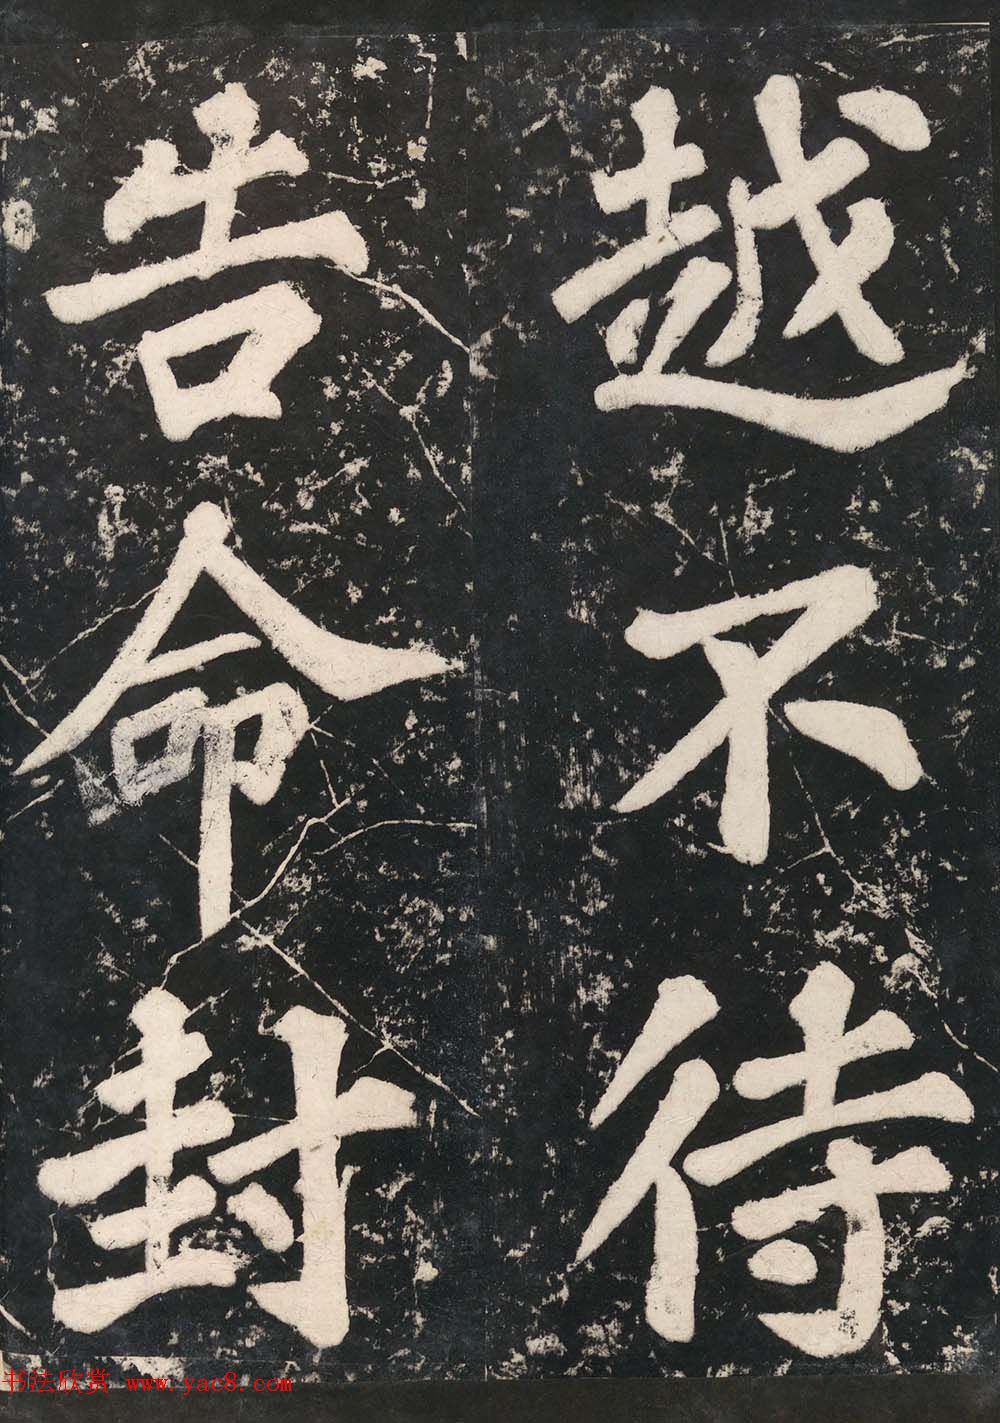 越不待
告命封
书法欣赏 www.yac8.com